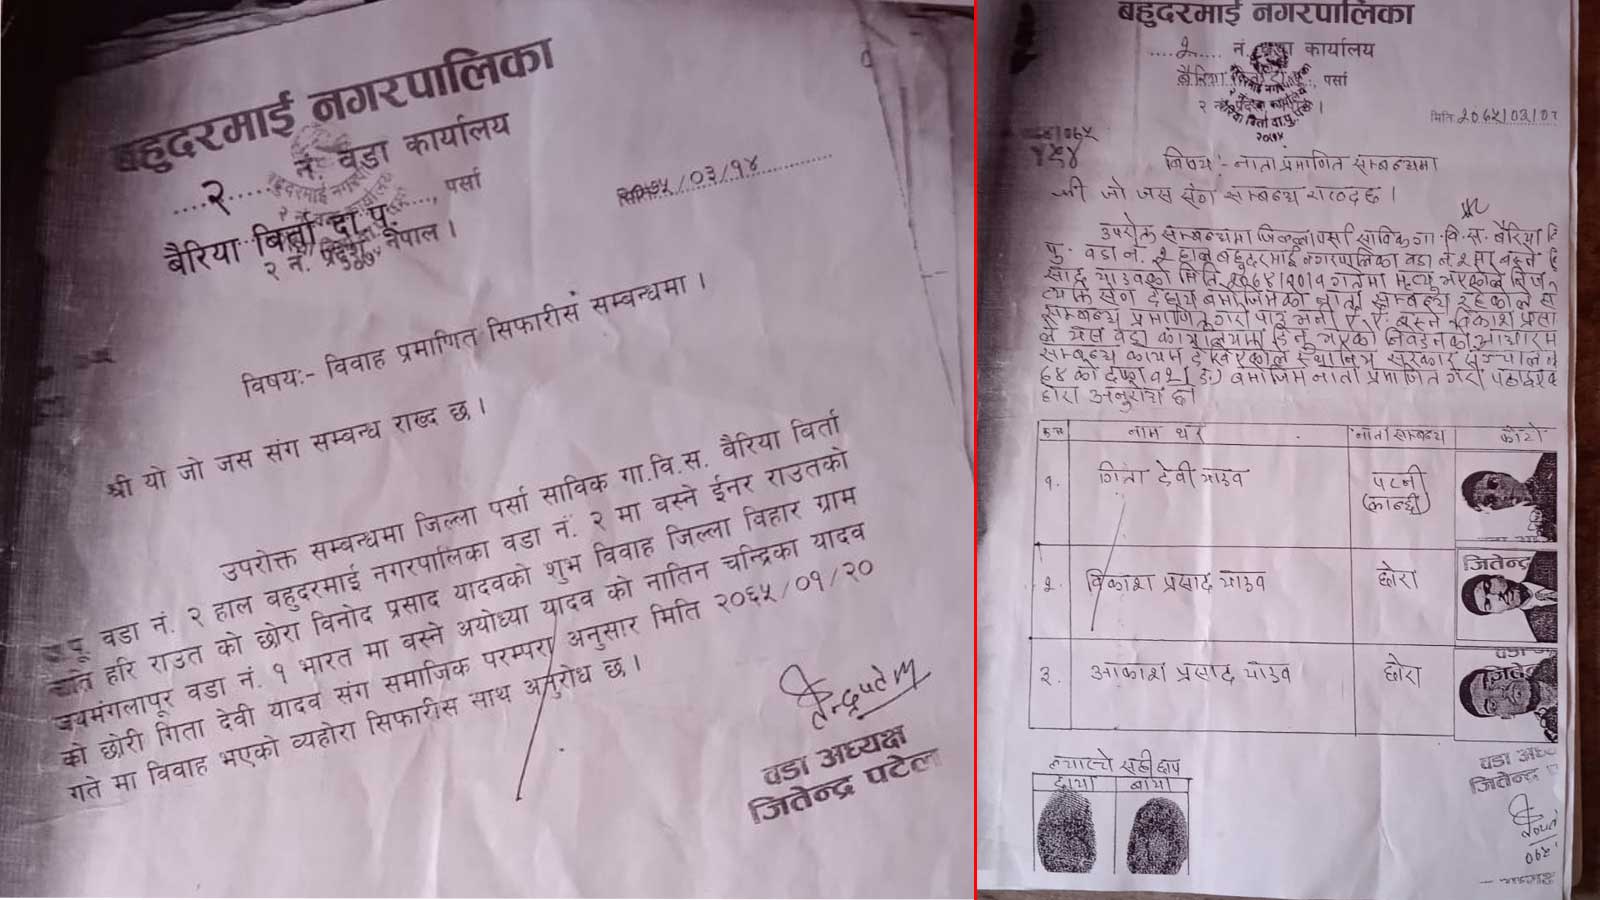 बहुदरमाई नगरपालिका
२ नं. वडा कार्यालय
बैरिया बिर्ता दा.पू., पर्सा
२ नं. प्रदेश, नेपाल ।
/०३/१४
विषय:- विवाह प्रमाणित सिफारीसं सम्बन्धमा ।
श्री यो जो जस संग सम्बन्ध राख्द छ ।
उपरोक्त सम्बन्धमा जिल्ला पर्सा साविक गा.वि.स. बैरिया विर्ता
पू. वडा नं. २ हाल बहुदरमाई नगरपालिका वडा नं. २ मा बस्ने ईनर राउतको
हरि राउत को छोरा विनोद प्रसाद यादवको शुभ विवाह जिल्ला विहार ग्राम
जयमंगलापूर वडा नं. १ भारत मा वस्ने अयोध्या यादव को नातिन चन्द्रिका यादव
को छोरी गिता देवी यादव संग समाजिक परम्परा अनुसार मिति २०६५/०१/२०
गते मा विवाह भएको व्यहोरा सिफारीस साथ अनुरोध छ ।
वडा अध्यक्ष
जितेन्द्र पटेल
बहुदरमाई नगरपालिका
२ नं. वडा कार्यालय
बैरिया बिर्ता दा.पू., पर्सा
२ नं. प्रदेश
२०७४
मिति २०७५/०३/०१
विषय:- नाता प्रमाणित सम्बन्धमा
श्री जो जस संग सम्बन्ध राख्द छ ।
उपरोक्त सम्बन्धमा जिल्ला पर्सा साविक गा.वि.स. बैरिया
पु. वडा नं. २ हाल बहुदरमाई नगरपालिका वडा नं २ मा बस्ने
यादवको मिति गतेमा मृत्यु भएकोले निज
संग देहाय बमोजिमको नाता सम्बन्ध रहेकोले
सम्बन्ध प्रमाणित गरी पाउ भनी बस्ने विकाश प्रसा
ले यस वडा कार्यालयमा दिनु भएको निवेदनको आधारमा
सम्बन्ध कायम देखिएकोले स्थानिय सरकार
७४ को दफा १२ बमोजिम नाता प्रमाणित गरी
द्वारा अनुरोध छ।
नाम थर नाता सम्बन्ध फोटो
१. गिता देवी यादव पत्नी
(कान्छी)
२. विकाश प्रसाद यादव छोरा
जितेन्द्र
३. आकाश प्रसाद यादव छोरा
ल्याप्चे सही छाप
दाया बाया
वडा अध्य
जितेन्द्र